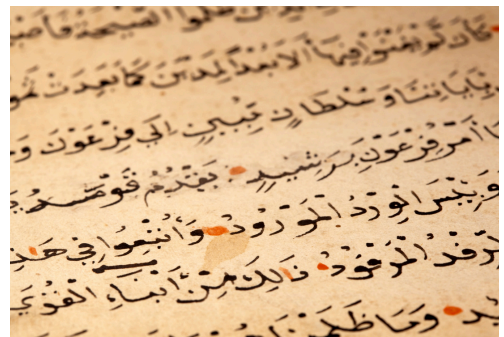 الذين ظلموا الصيحة فأصبـ
كَأَن لَّمْ يَغْنَوْا فِيهَا أَلَا بُعْدًا لِّمَدْيَنَ كَمَا بَعِدَتْ ثَمُو
بِـَٔايَاتِنَا وَسُلْطَانٍ مُّبِينٍ إِلَى فِرْعَوْنَ وَ
ا أَمْرُ فِرْعَوْنَ بِرَشِيدٍ يَقْدُمُ قَوْمَهُ
وَبِئْسَ الْوِرْدُ الْمَوْرُودُ وَأُتْبِعُوا فِي هَذِ
الرِّفْدُ الْمَرْفُودُ ذَلِكَ مِنْ أَنبَاءِ الْقُرَى
يد وَمَا ظَلَمْنَا